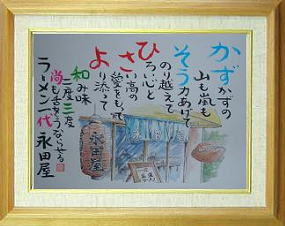 かずかずの
山も嵐も
そう力あげて
のり越えて
ひろい心と
さい高の
愛をもって
より添って
和み味
二度三度
尚も舌をうならせる
ラーメン一代 永田屋
永田屋